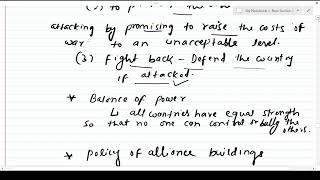 attacking by promising to raise the costs of
war to an unacceptable level.
(3) Fight back - Defend the country
if attacked.
* Balance of power
↳ all countries have equal strength
so that no one can control or bully the
others.
* policy of alliance buildings